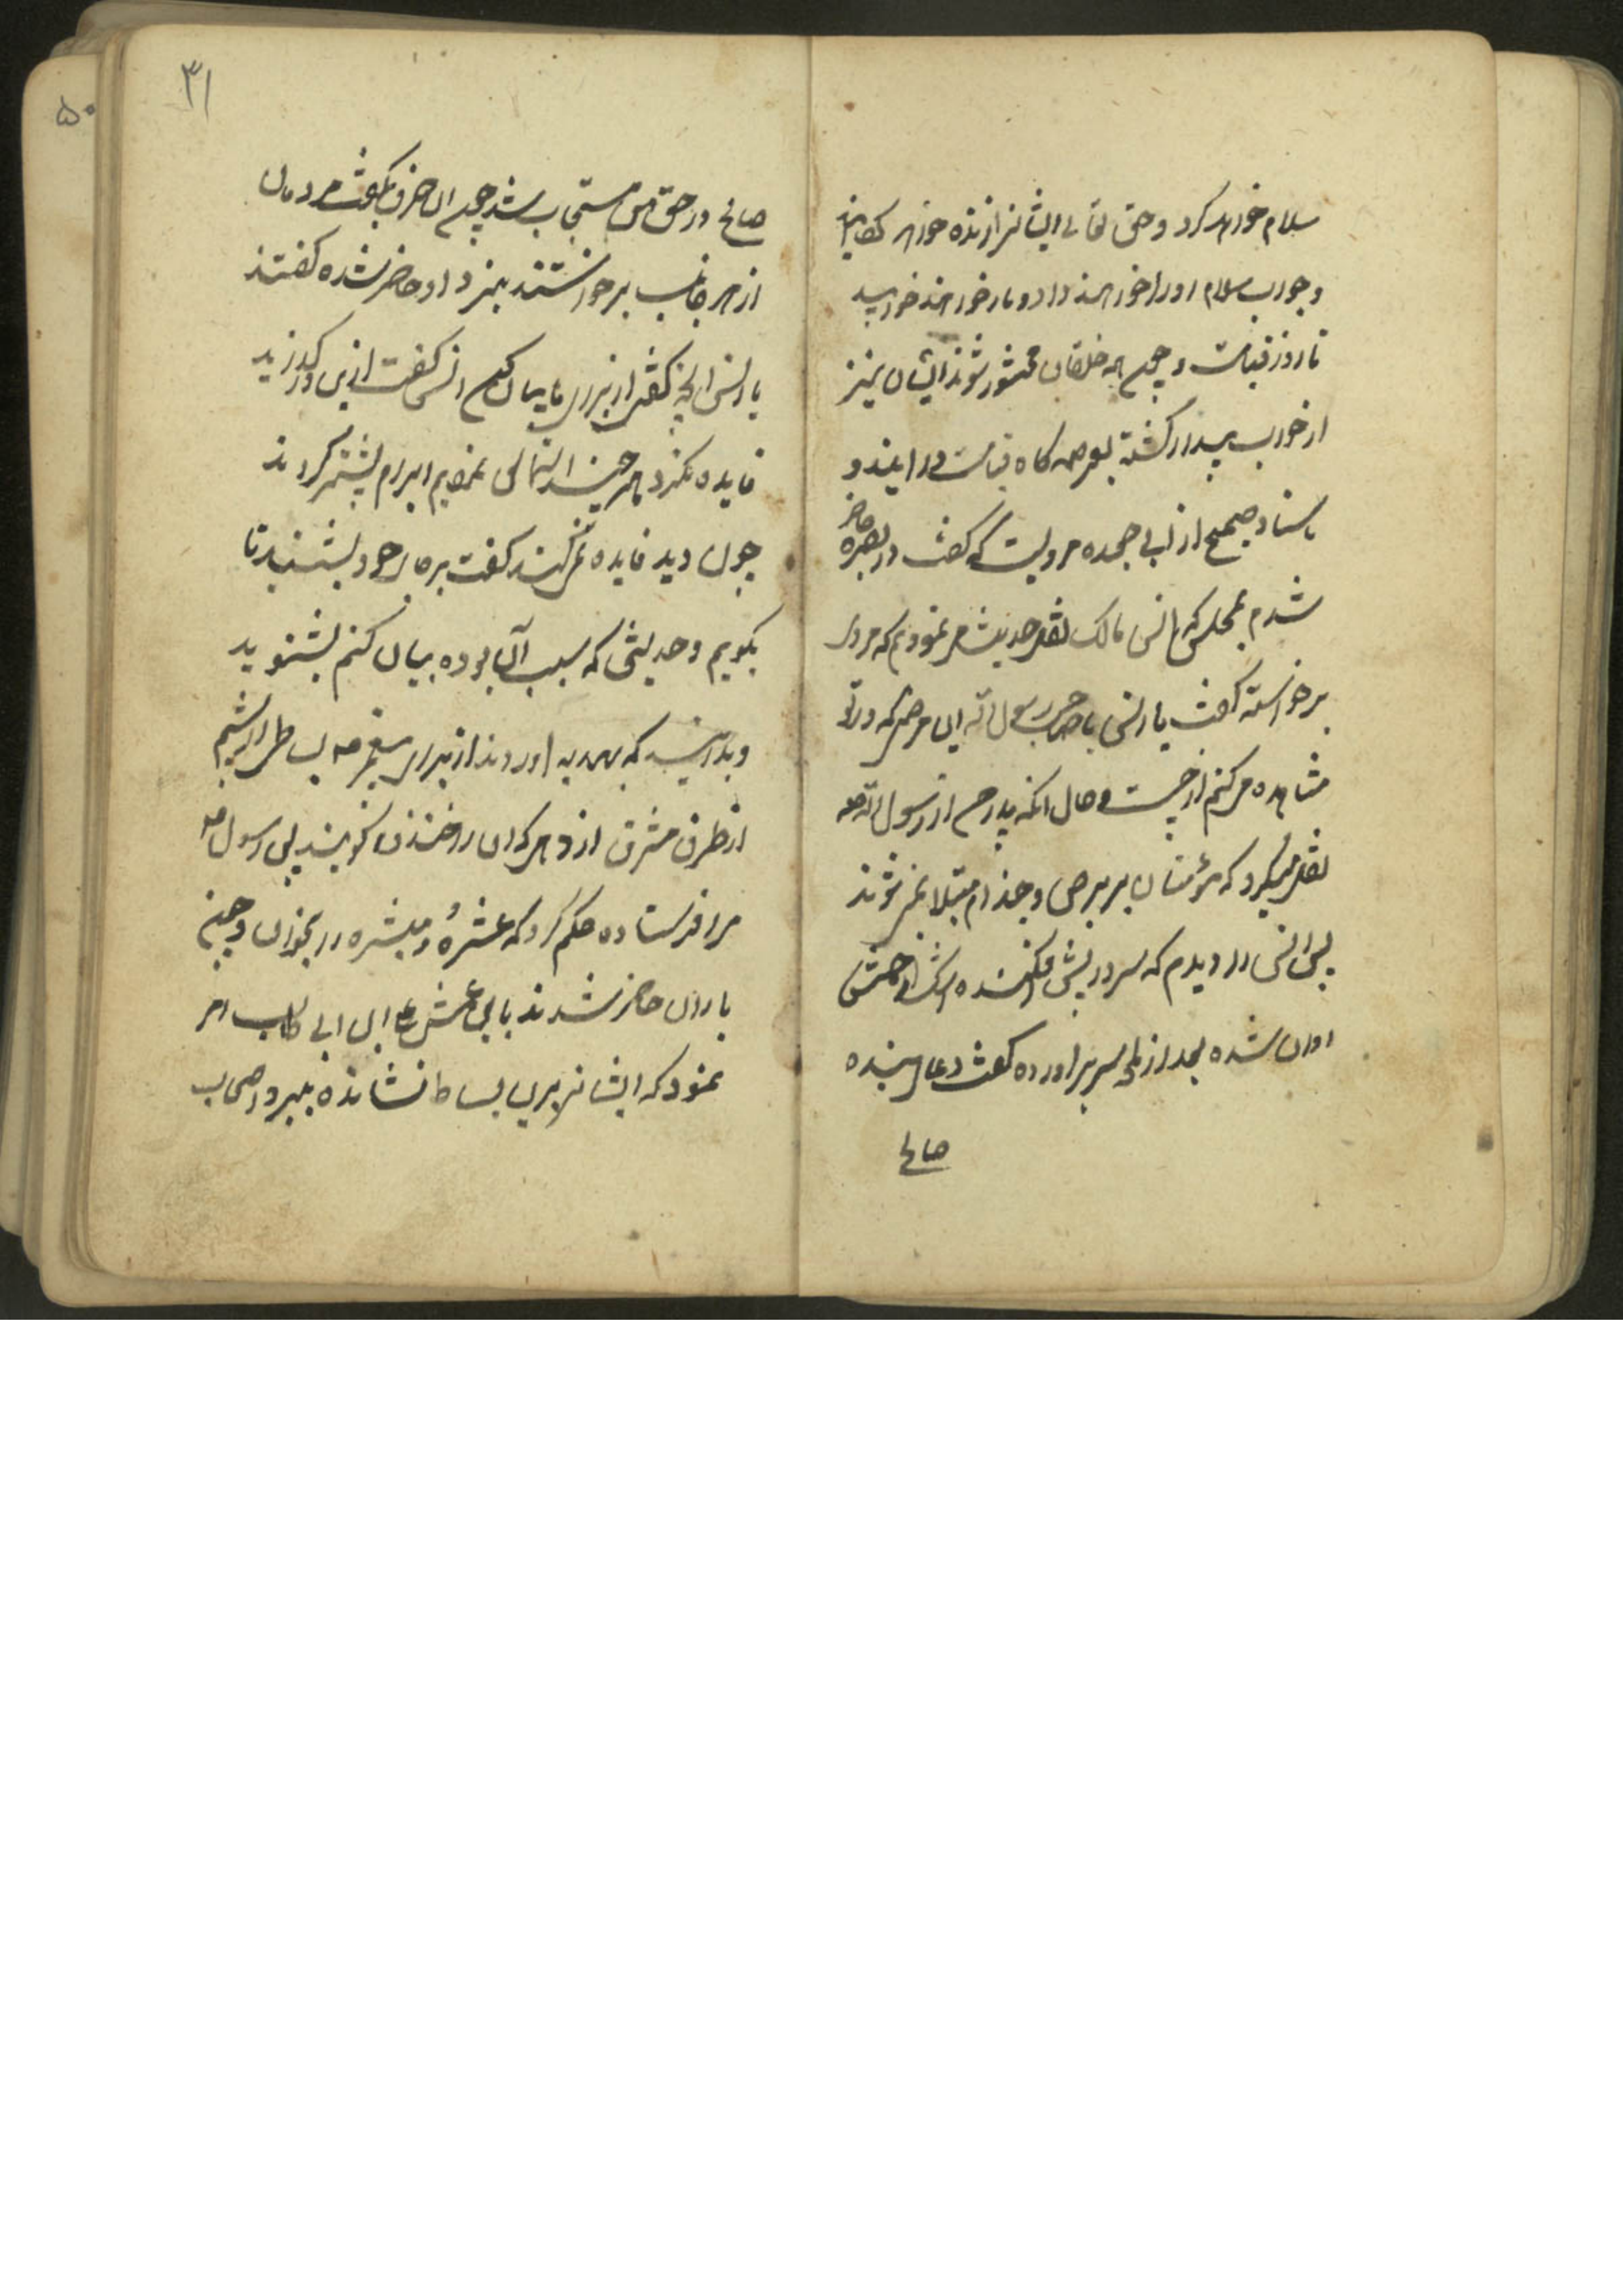 سلام خواهد کرد و حق تعالی ایشانرا زنده خواهد کردانید
و جواب سلام او را خواهند داد و باز خواهند خوابید
تا روز قیامت و چون همه خلقان محشور شوند ایشان نیز
از خواب بیدار کشته بعرصه کاه قیامت در ایند و
باسناد صحیح از ابی جعده مرویست که کفت در بصره حاضر
شدم بمجلسی که انس مالک نقل حدیث می نمود که مردی
برخواسته کفت یا انس یا صاحب رسول الله این مرضی که در تو
مشاهده می کنم از چیست و حال انکه پدرم از رسول الله صه
نقل میکرد که مؤمنان ببرص و جذام مبتلا نمی شوند
پس انس را دیدم که سر در پیش افکنده اشک از چشمش
روان شده بعد از لمحه سر بر اورده کفت دعای بنده
صالح
۳۱
۵۰
صالح در حق من مستجاب شد چون این حرف بکفت مردمان
از هر جانب برخواستند بنزد او حاضر شده کفتند
یا انس انچه کفتی از برای ما بیان کن انس کفت ازین در کذرید
فایده نکرد هر چند التماس نمودیم ابرام بیشتر کردند
چون دید فایده نمی کند کفت بر جای خود بنشینید تا
بکویم و حدیثی که سبب آن بوده بیان کنم بشنوید
و بدانید که بهدیه اوردند از برای پیغمبر صه بساطی از پشم
از طرف مشرق از دهی که ان را خندف کویند پس رسول صه
مرا فرستاده حکم کرد که عشرۀ مبشره را بخوان و چون
یاران حاضر شدند با پسر عمش علی ابن ابی طالب امر
نمود که ایشانرا برین بساط نشانده ببر و اصحاب